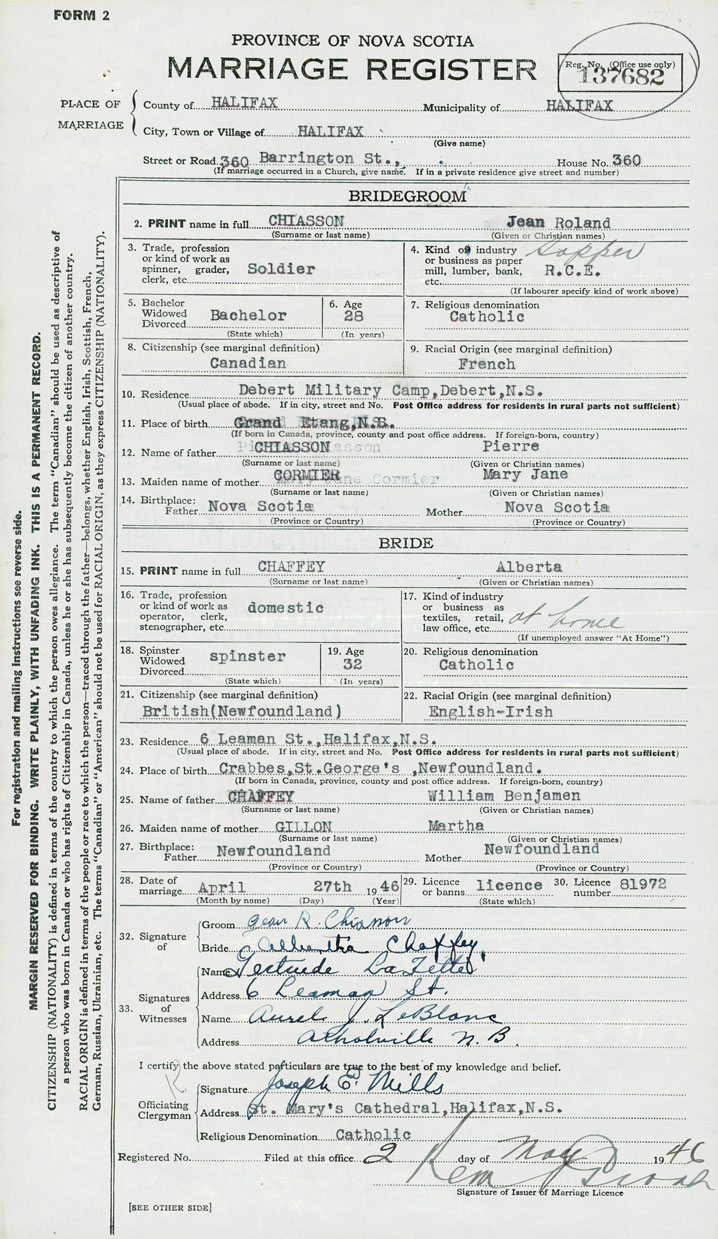 FORM 2
PROVINCE OF NOVA SCOTIA
MARRIAGE REGISTER
Reg. No. (Office use only)
137682
PLACE OF MARRIAGE
County of HALIFAX Municipality of HALIFAX
City, Town or Village of HALIFAX
(Give name)
Street or Road 360 Barrington St., House No. 360
(If marriage occurred in a Church, give name. If in a private residence give street and number)
BRIDEGROOM
2. PRINT name in full CHIASSON Jean Roland
(Surname or last name) (Given or Christian names)
3. Trade, profession or kind of work as spinner, grader, clerk, etc. Soldier
4. Kind of industry or business as paper mill, lumber, bank, etc. Sapper R.C.E.
(If labourer specify kind of work above)
5. Bachelor Widowed Divorced Bachelor
(State which)
6. Age 28
(In years)
7. Religious denomination
Catholic
8. Citizenship (see marginal definition)
Canadian
9. Racial Origin (see marginal definition)
French
10. Residence Debert Military Camp, Debert, N.S.
(Usual place of abode. If in city, street and No. Post Office address for residents in rural parts not sufficient)
11. Place of birth Grand Etang, N.S.
(If born in Canada, province, county and post office address. If foreign-born, country)
12. Name of father CHIASSON Pierre
(Surname or last name) (Given or Christian names)
13. Maiden name of mother CORMIER Mary Jane
(Surname or last name) (Given or Christian names)
14. Birthplace: Father Nova Scotia Mother Nova Scotia
(Province or Country) (Province or Country)
BRIDE
15. PRINT name in full CHAFFEY Alberta
(Surname or last name) (Given or Christian names)
16. Trade, profession or kind of work as operator, clerk, stenographer, etc. domestic
17. Kind of industry or business as textiles, retail, law office, etc. at home
(If unemployed answer "At Home")
18. Spinster Widowed Divorced spinster
(State which)
19. Age 32
(In years)
20. Religious denomination
Catholic
21. Citizenship (see marginal definition)
British(Newfoundland)
22. Racial Origin (see marginal definition)
English-Irish
23. Residence 6 Leaman St., Halifax, N.S.
(Usual place of abode. If in city, street and No. Post Office address for residents in rural parts not sufficient)
24. Place of birth Crabbes, St. George's, Newfoundland.
(If born in Canada, province, county and post office address. If foreign-born, country)
25. Name of father CHAFFEY William Benjamen
(Surname or last name) (Given or Christian names)
26. Maiden name of mother GILLON Martha
(Surname or last name) (Given or Christian names)
27. Birthplace: Father Newfoundland Mother Newfoundland
(Province or Country) (Province or Country)
28. Date of marriage April 27th 1946
(Month by name) (Day) (Year)
29. Licence or banns licence
(State which)
30. Licence number 81972
32. Signature of
Groom Jean R. Chiasson
Bride Chaffey
33. Signatures of Witnesses
Name Gertrude
Address 6 Leaman St.
Name Aurel J. LeBlanc
Address Atholville N.B.
I certify the above stated particulars are true to the best of my knowledge and belief.
Officiating Clergyman
Signature Joseph E. Mills
Address St. Mary's Cathedral, Halifax, N.S.
Religious Denomination Catholic
Registered No. Filed at this office 2 day of May 1946
Signature of Issuer of Marriage Licence
[SEE OTHER SIDE]
For registration and mailing instructions see reverse side.
MARGIN RESERVED FOR BINDING. WRITE PLAINLY, WITH UNFADING INK. THIS IS A PERMANENT RECORD.
CITIZENSHIP (NATIONALITY) is defined in terms of the country to which the person owes allegiance. The term "Canadian" should be used as descriptive of
a person who was born in Canada or who has rights of Citizenship in Canada, unless he or she has subsequently become the citizen of another country.
RACIAL ORIGIN is defined in terms of the people or race to which the person—traced through the father—belongs, whether English, Irish, Scottish, French,
German, Russian, Ukrainian, etc. The terms "Canadian" or "American" should not be used for RACIAL ORIGIN, as they express CITIZENSHIP (NATIONALITY).